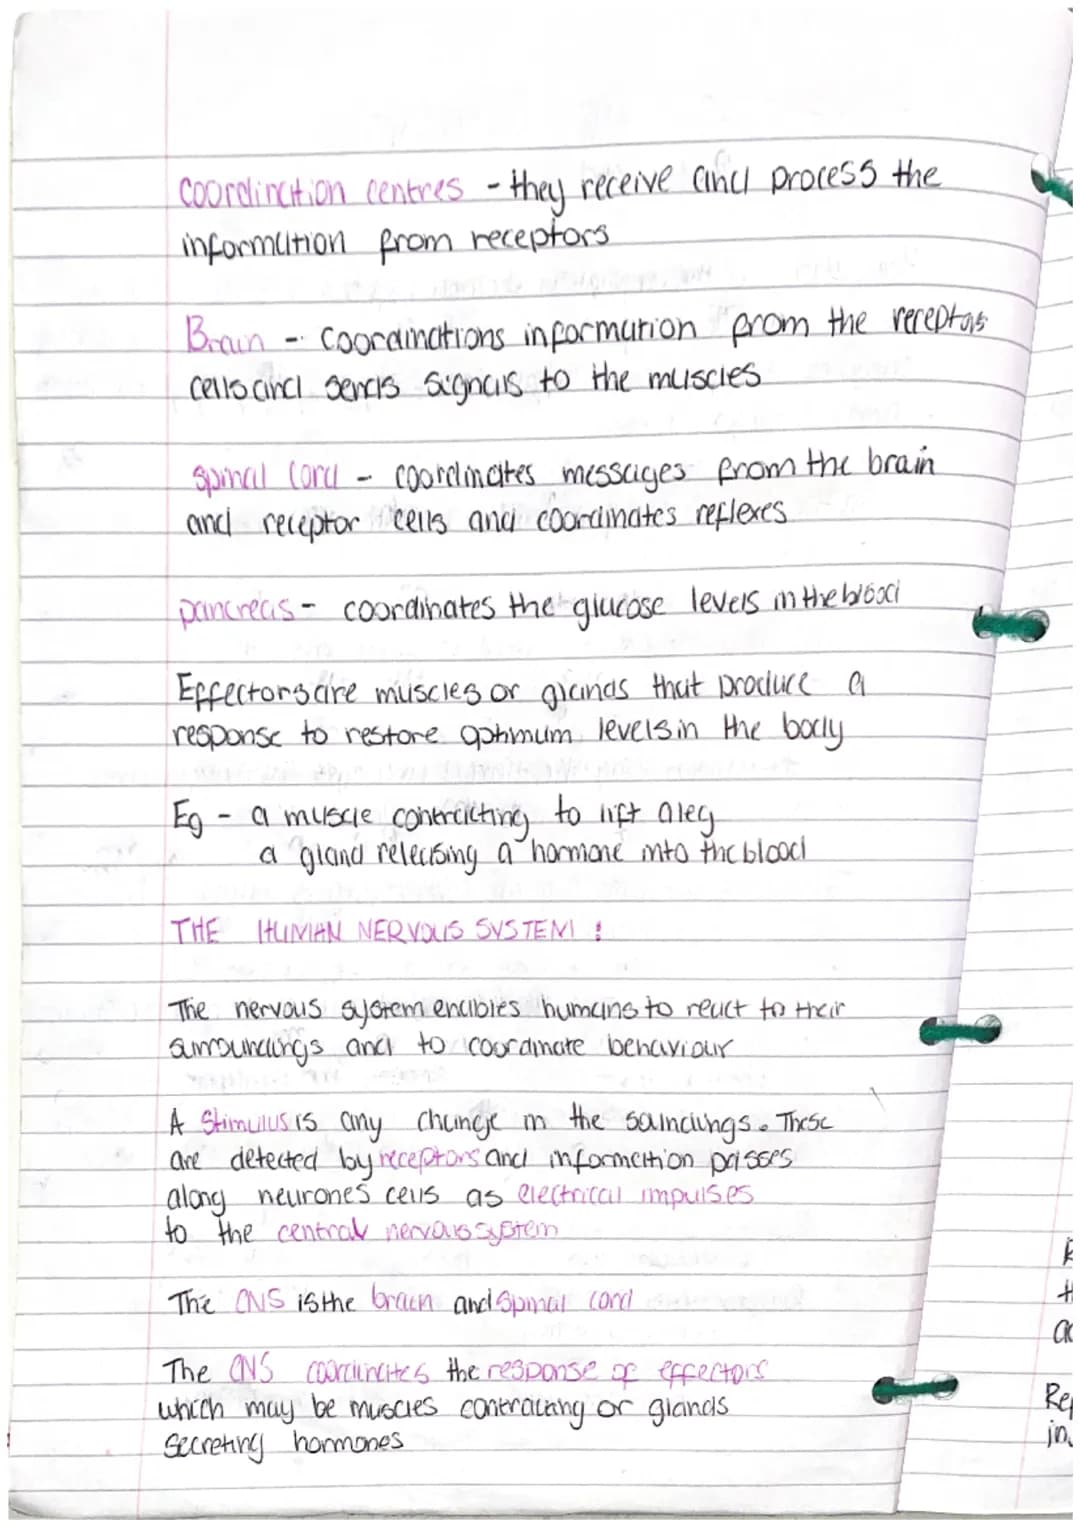 coordination centres - they receive and process the
information from receptors
Brain - coordinations information from the receptors
cells and sends signals to the muscles
spinal cord - coordinates messages from the brain
and receptor cells and coordinates reflexes
pancreas - coordinates the glucose levels in the blood
Effectors are muscles or glands that produce a
response to restore optimum levels in the body
Eg - a muscle contracting to lift a leg
a gland releasing a hormone into the blood
THE HUMAN NERVOUS SYSTEM :
The nervous system enables humans to react to their
surroundings and to coordinate behaviour
A Stimulus is any change in the sourndings. These
are detected by receptors and information passes
along neurones cells as electrical impulses
to the central nervous system
The CNS is the brain and Spinal cord
The CNS coordinates the response of effectors
which may be muscles contracting or glands
secreting hormones